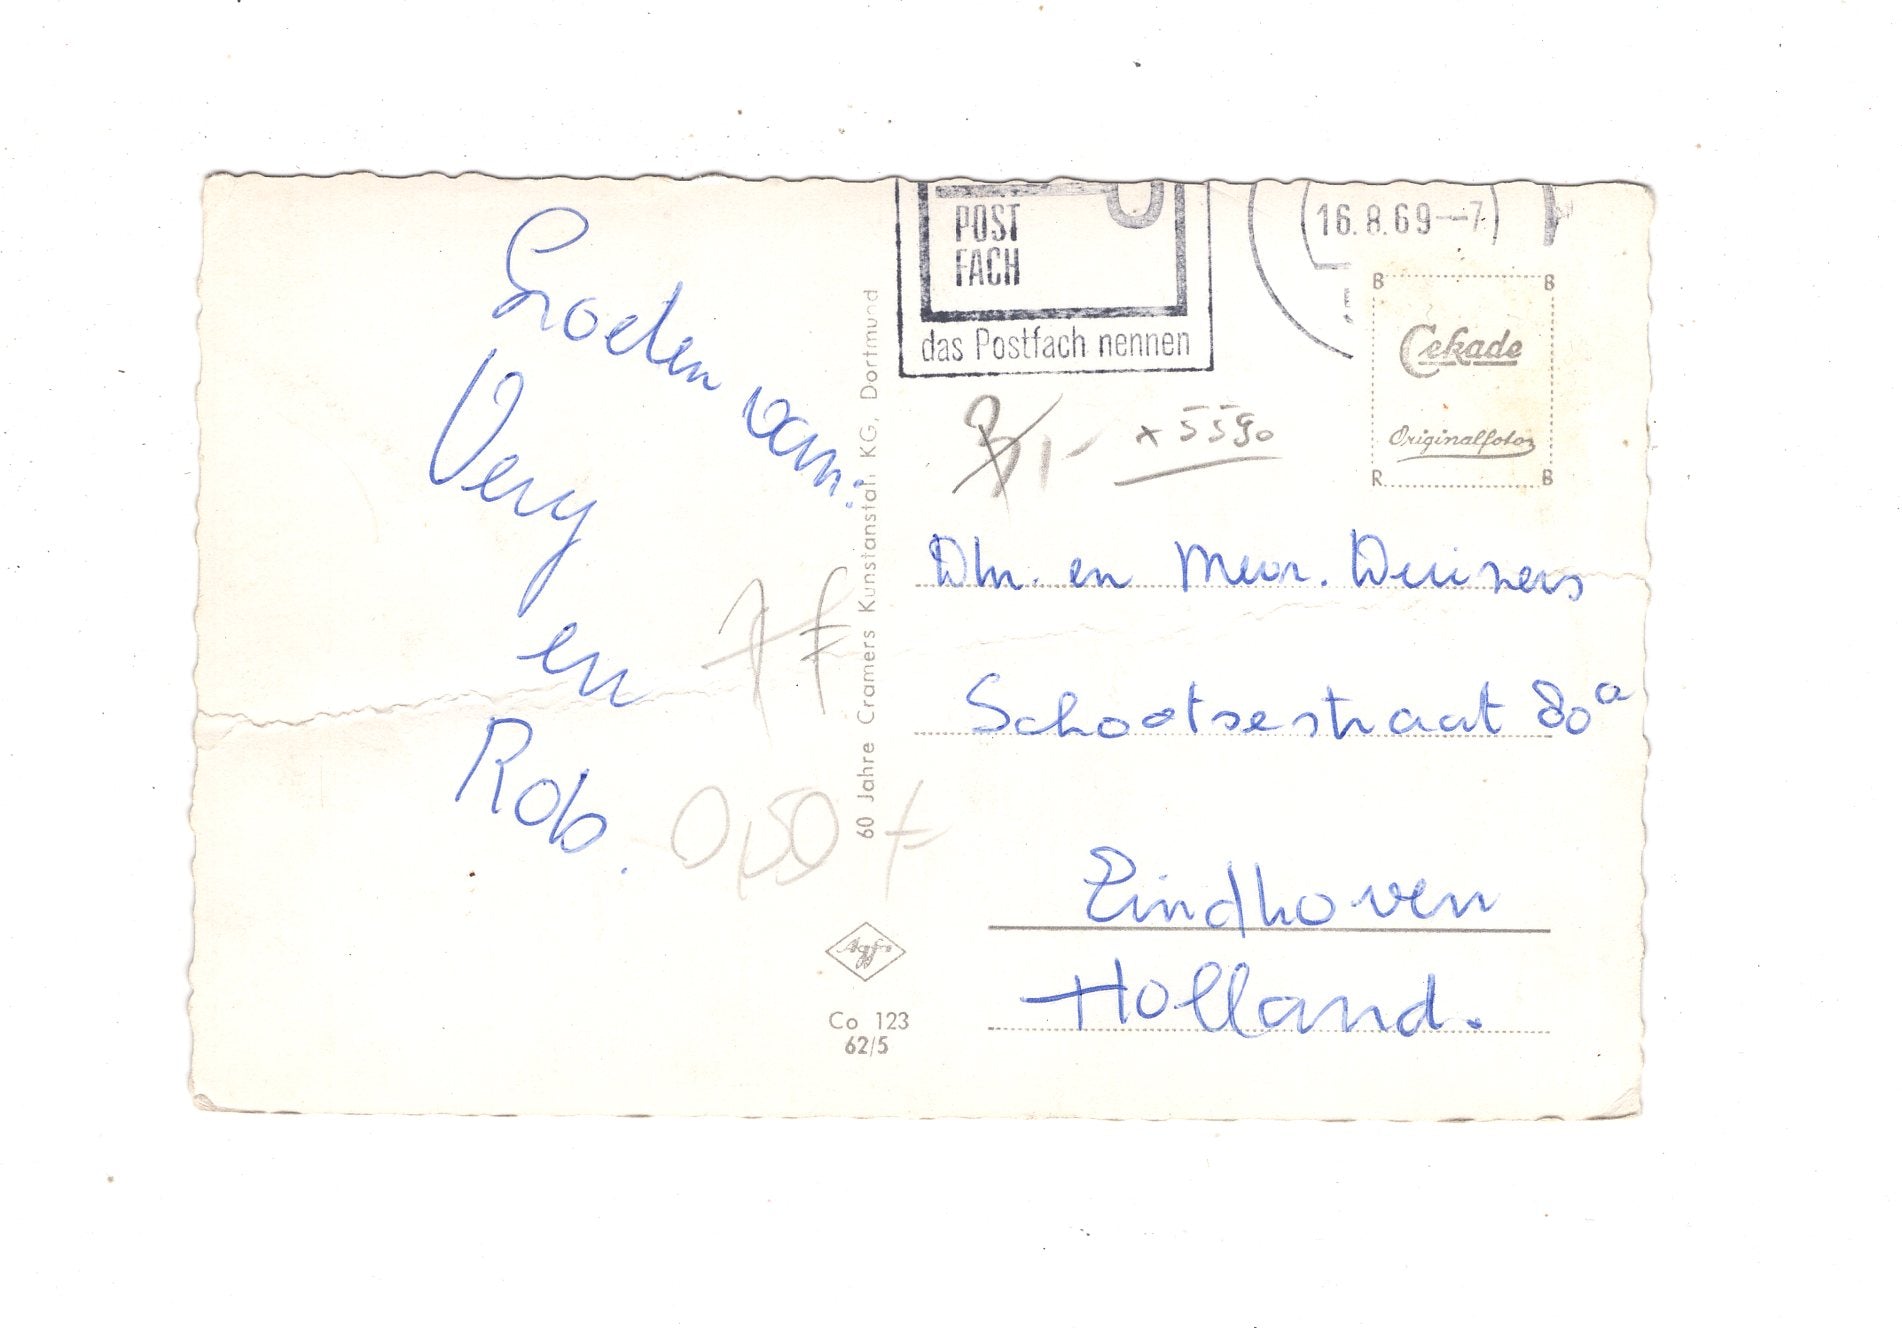 Groeten van:
Very
en
Rob.
0,50
60 Jahre Cramers Kunstanstalt KG, Dortmund
Agfa
Co 123
62/5
POST
FACH
das Postfach nennen
16.8.69--7
B B
Cekade
Originalfoto
R B
x 5590
Dhr. en Mevr.
Schootsestraat 80a
Eindhoven
Holland.